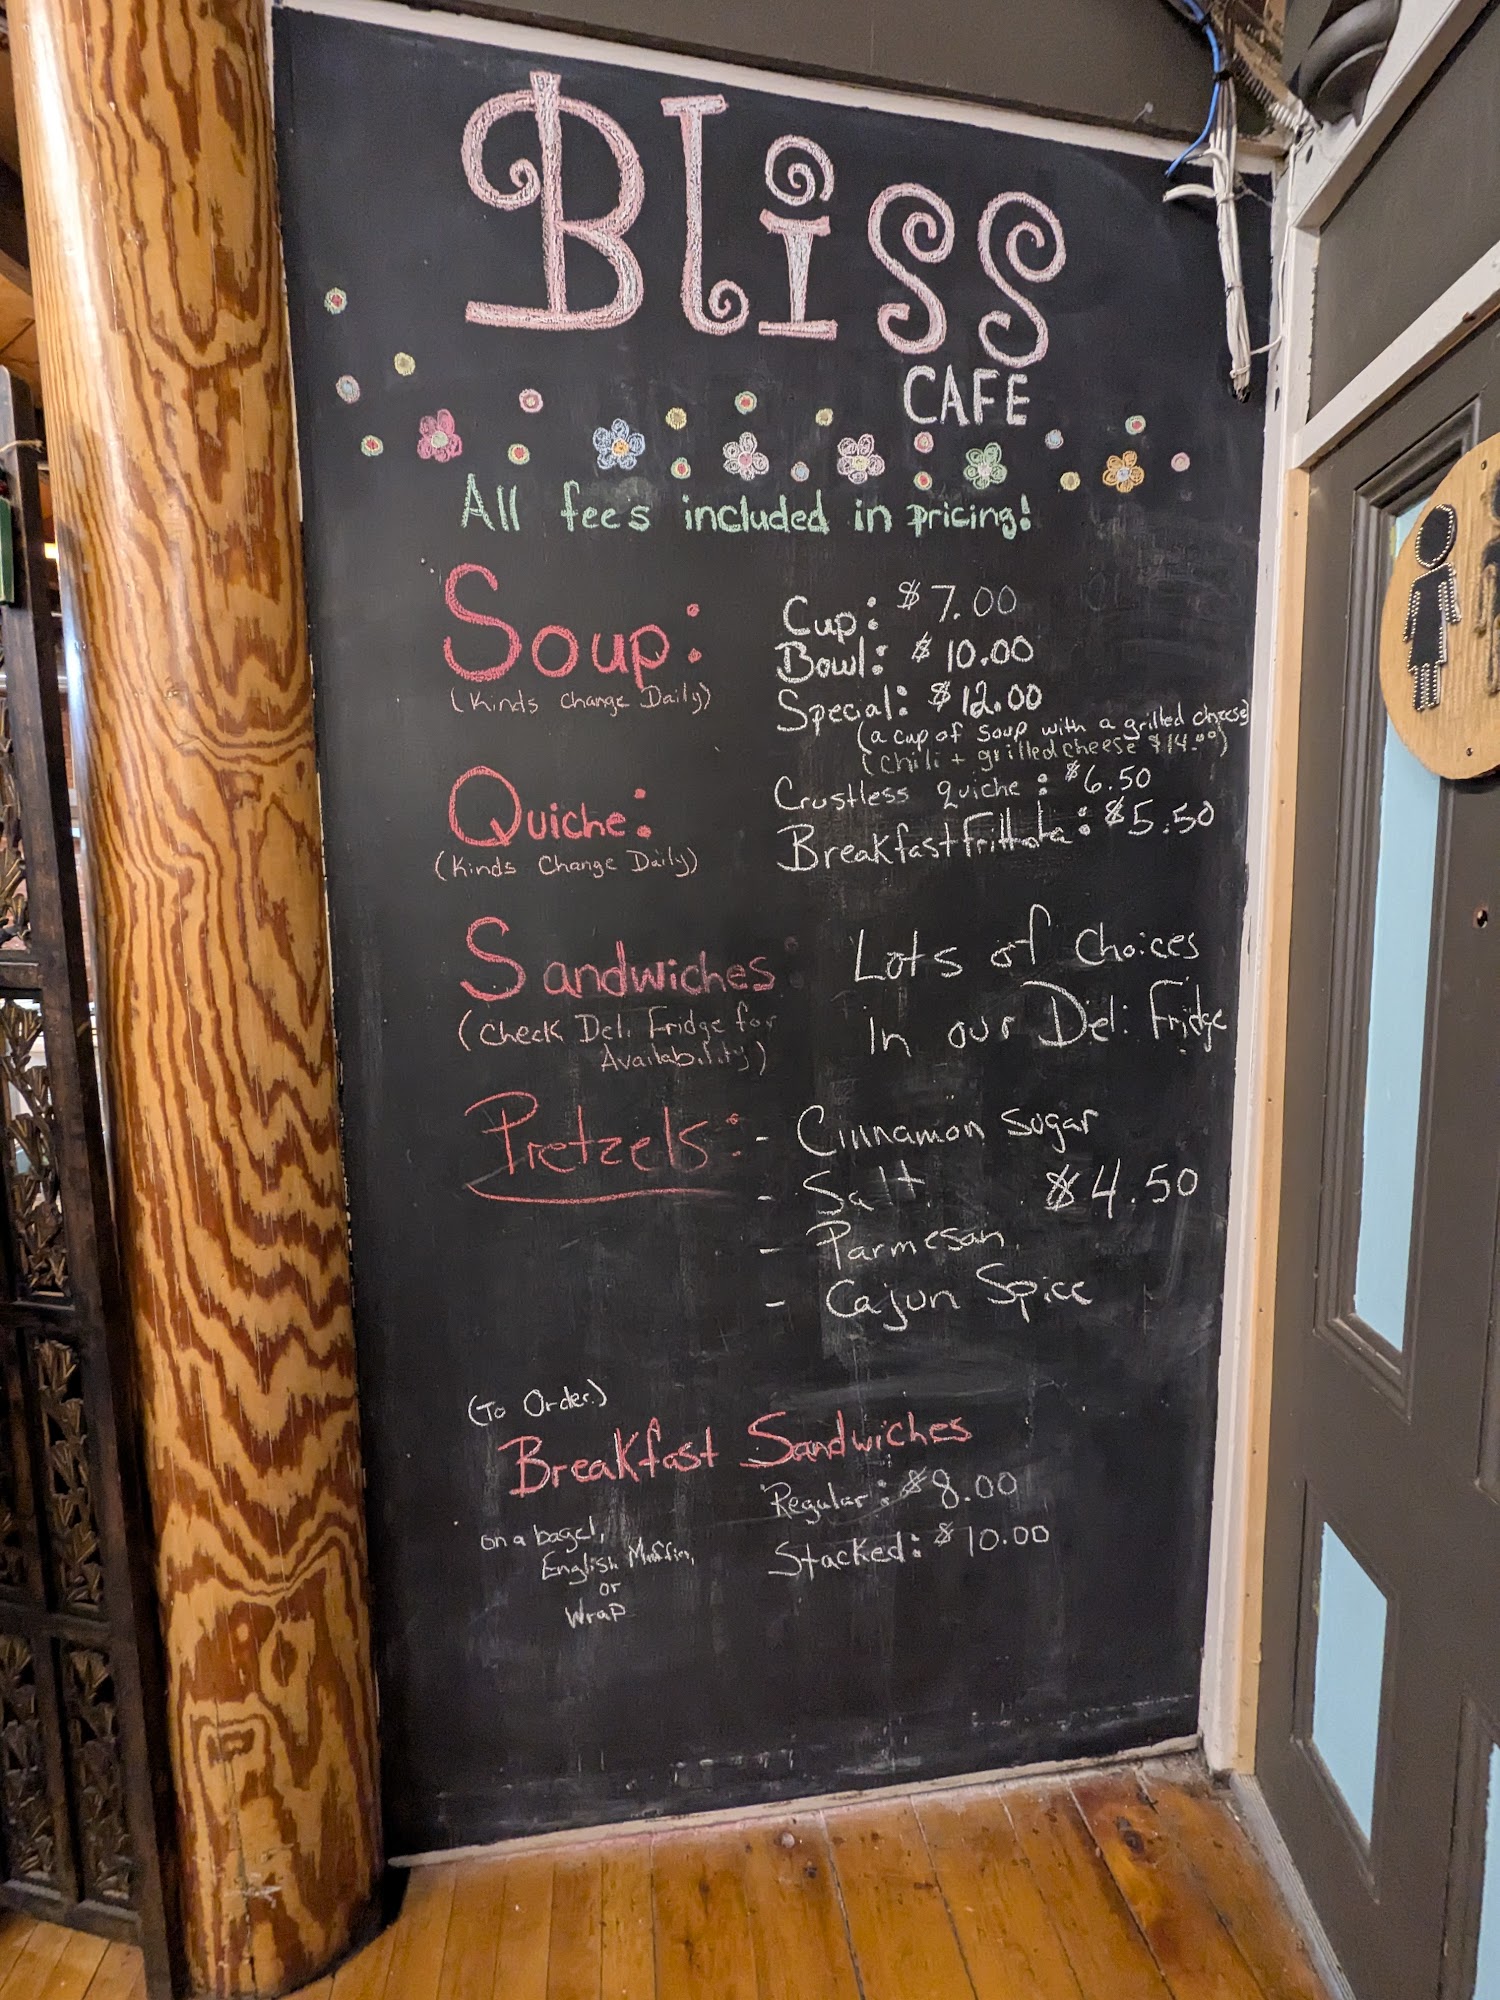 Bliss
CAFE
All fees included in pricing!
Soup:
(Kinds Change Daily)
Cup: $7.00
Bowl: $10.00
Special: $12.00
(a cup of soup with a grilled cheese)
(chili + grilled cheese $14.00)
Quiche:
(Kinds Change Daily)
Crustless quiche: $6.50
Breakfast Frittata: $5.50
Sandwiches
(Check Deli Fridge for
Availability)
Lots of Choices
in our Deli Fridge
Pretzels:
- Cinnamon Sugar
- Salt $4.50
- Parmesan
- Cajun Spice
(To Order)
Breakfast Sandwiches
on a bagel,
English Muffin,
or
Wrap
Regular: $8.00
Stacked: $10.00